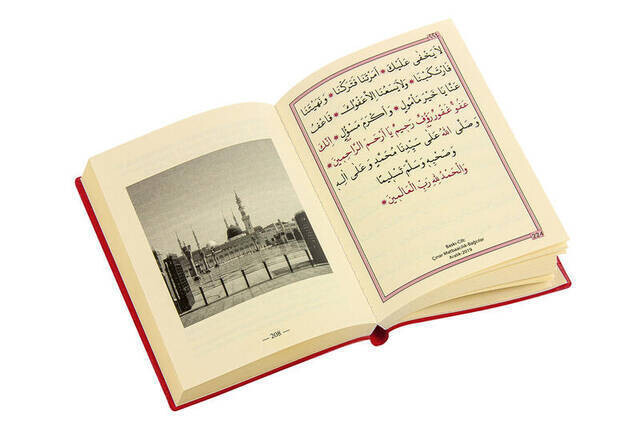 لَا يَخْفٰى عَلَيْكَ * اَمَرْتَنَا فَتَرَكْنَا * وَنَهَيْتَنَا
فَارْتَكَبْنَا * وَلَا يَسَعُنَا اِلَّا عَفْوُكَ * فَاعْفُ
عَنَّا يَا خَيْرَ مَأْمُولٍ * وَاَكْرَمَ مَسْؤُلٍ * اِنَّكَ
عَفُوٌّ غَفُورٌ رَؤُفٌ رَحِيمٌ يَا اَرْحَمَ الرَّاحِمِينَ *
وَصَلَّى اللهُ عَلٰى سَيِّدِنَا مُحَمَّدٍ وَعَلٰى اٰلِهِ
وَصَحْبِهِ وَسَلَّمَ تَسْلِيمًا
وَالْحَمْدُ لِلهِ رَبِّ الْعَالَمِينَ *
Baskı-Cilt
Çınar Matbaacılık-Bağcılar
Aralık-2019
224
— 208 —